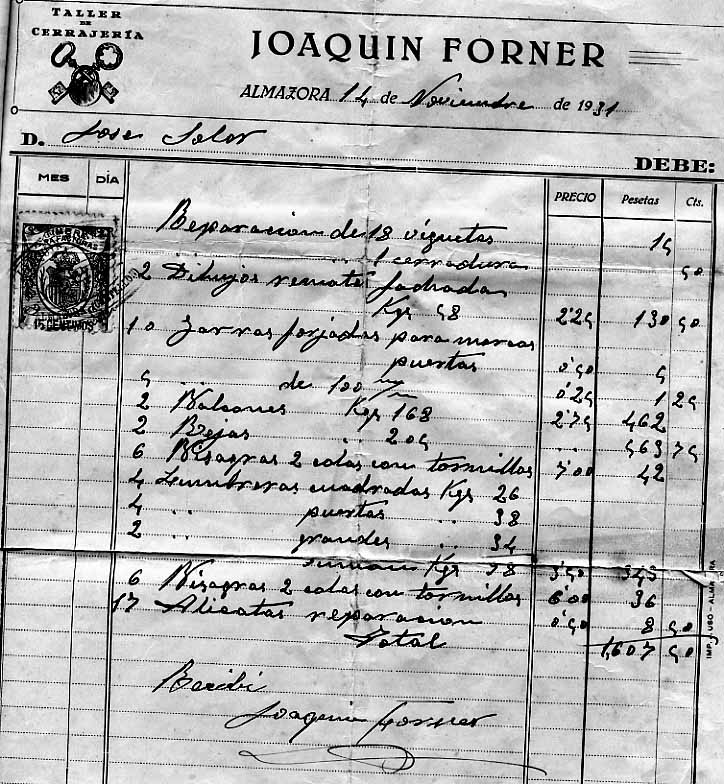 TALLER
DE
CERRAJERÍA
JOAQUIN FORNER
ALMAZORA 14 de Noviembre de 1931
D. Jose Soler
DEBE:
MES DÍA PRECIO Pesetas Cts.
Reparacion de 18 viguetas 15
" 1 cerradura 50
2 Dibujos remate fachada
Kgs 58 2'25 130 50
10 Garras forjadas para marcos
puertas 0'50 5
5 " " de 100 m/m 0'25 1 25
2 Balcones Kgs 168 2'75 462
2 Rejas " " 205 " " 563 75
6 Bisagras 2 colas con tornillos 7'00 42
4 Lumbreras cuadradas Kgs 26
4 " " puertas " " 38
2 " " grandes " " 34
Suman Kgs 98 3'50 343
6 Bisagras 2 colas con tornillos 6'00 36
17 Alicatas reparacion 0'50 8 50
Total 1,607 50
Recibi
Joaquin Forner
15 CENTIMOS